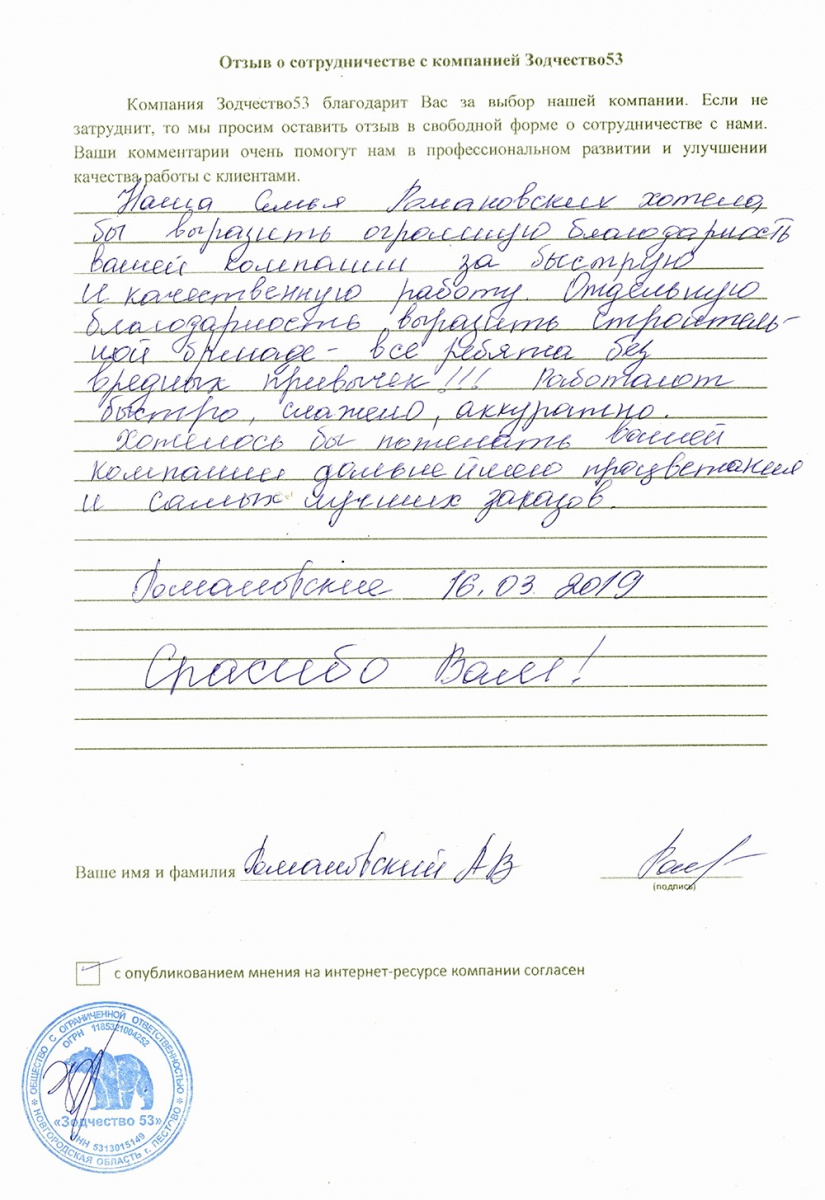 Отзыв о сотрудничестве с компанией Зодчество53
Компания Зодчество53 благодарит Вас за выбор нашей компании. Если не
затруднит, то мы просим оставить отзыв в свободной форме о сотрудничестве с нами.
Ваши комментарии очень помогут нам в профессиональном развитии и улучшении
качества работы с клиентами.
Наша Семья Романовских хотела
бы выразить огромную благодарность
вашей компании за быструю
и качественную работу. Отдельную
благодарность выразить строитель-
ной бригаде - все ребята без
вредных привычек!!! Работают
быстро, слажено, аккуратно.
Хотелось бы пожелать вашей
компании дальнейшего процветания
и самых лучших заказов.
Романовские 16.03.2019
Спасибо Вам!
Ваше имя и фамилия Романовский АВ
(подпись)
с опубликованием мнения на интернет-ресурсе компании согласен
ОБЩЕСТВО С ОГРАНИЧЕННОЙ ОТВЕТСТВЕННОСТЬЮ
ОГРН 1185321004252
«Зодчество 53»
ИНН 5313015149
НОВГОРОДСКАЯ ОБЛАСТЬ г. ПЕСТОВО